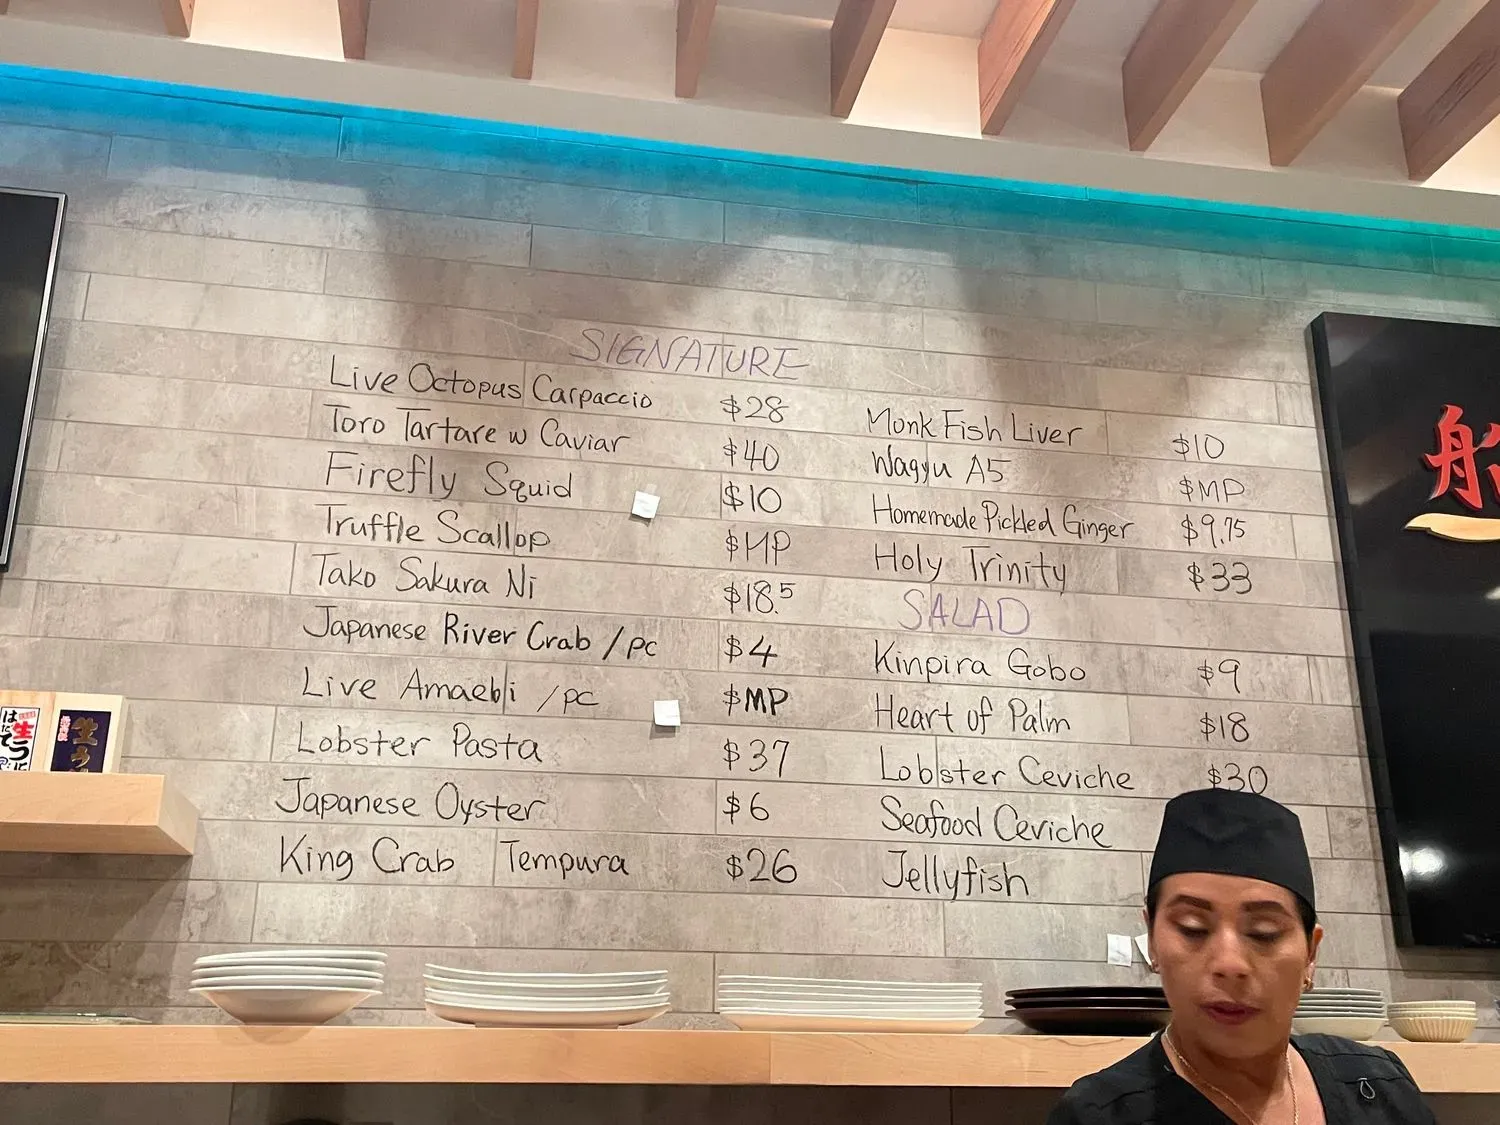 SIGNATURE
Live Octopus Carpaccio $28
Toro Tartare w Caviar $40
Firefly Squid $10
Truffle Scallop $MP
Tako Sakura Ni $18.5
Japanese River Crab /pc $4
Live Amaebi /pc $MP
Lobster Pasta $37
Japanese Oyster $6
King Crab Tempura $26
Monk Fish Liver $10
Wagyu A5 $MP
Homemade Pickled Ginger $9.75
Holy Trinity $33
SALAD
Kinpira Gobo $9
Heart of Palm $18
Lobster Ceviche $30
Seafood Ceviche
Jellyfish
船
生うに
はたて